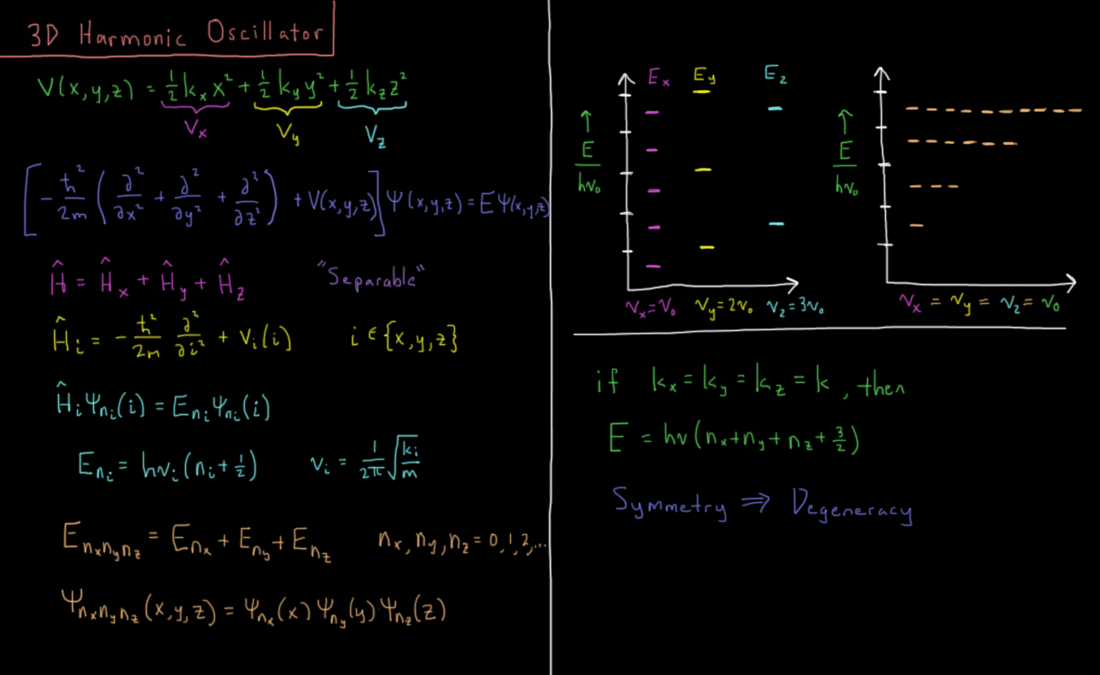 3D Harmonic Oscillator
V(x,y,z) = ½kₓx² + ½k_y y² + ½k_z z²
Vₓ V_y V_z
[-ħ²/2m (∂²/∂x² + ∂²/∂y² + ∂²/∂z²) + V(x,y,z)] Ψ(x,y,z) = EΨ(x,y,z)
Ĥ = Ĥₓ + Ĥ_y + Ĥ_z "Separable"
Ĥᵢ = -ħ²/2m ∂²/∂i² + Vᵢ(i) i ∈ {x,y,z}
Ĥᵢ Ψₙᵢ(i) = Eₙᵢ Ψₙᵢ(i)
Eₙᵢ = hνᵢ(nᵢ + ½) νᵢ = 1/2π √(kᵢ/m)
E_nₓn_yn_z = E_nₓ + E_n_y + E_n_z nₓ, n_y, n_z = 0,1,2,...
Ψ_nₓn_yn_z(x,y,z) = Ψ_nₓ(x) Ψ_n_y(y) Ψ_n_z(z)
Eₓ E_y E_z
↑ E/hν₀
νₓ=ν₀ ν_y=2ν₀ ν_z=3ν₀
↑ E/hν₀
νₓ = ν_y = ν_z = ν₀
if kₓ = k_y = k_z = k, then
E = hν(nₓ+n_y+n_z+3/2)
Symmetry ⇒ Degeneracy